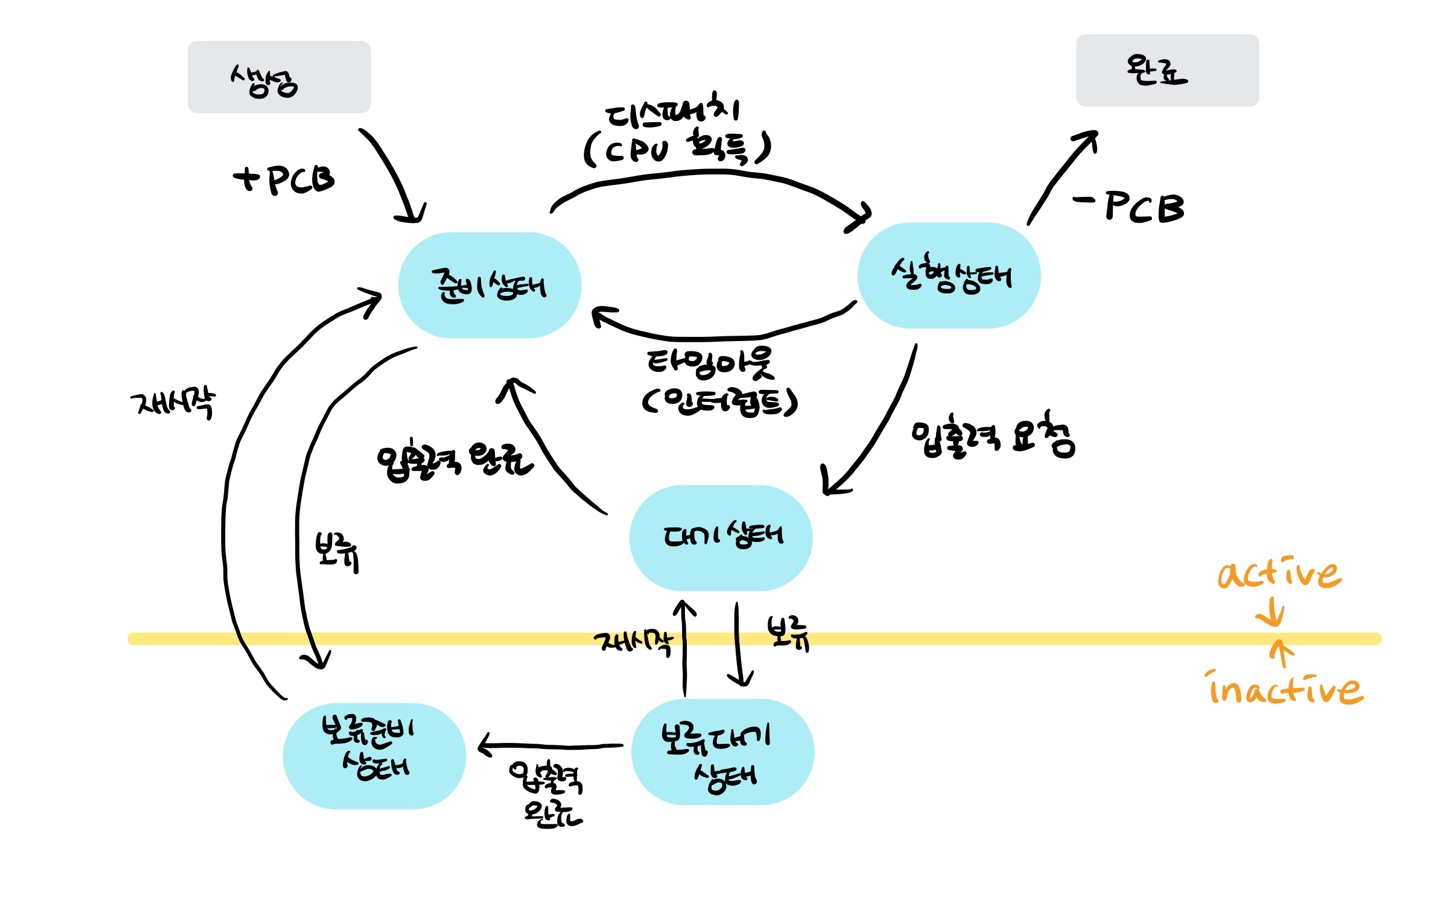 생성
완료
디스패치
(CPU 획득)
+PCB
-PCB
준비상태
실행상태
타임아웃
(인터럽트)
재시작
입출력 완료
입출력 요청
보류
대기상태
active
재시작
보류
inactive
보류준비
상태
보류대기
상태
입출력
완료